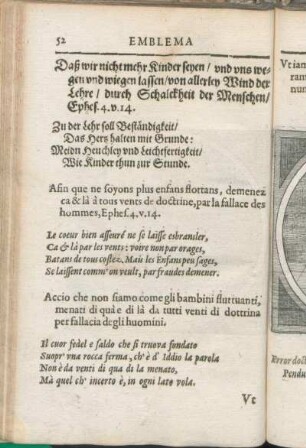 52 EMBLEMA
Daß wir nicht mehr Kinder seyen / vnd vns we-
gen vnd wiegen lassen / von allerley Wind der
Lehre / durch Schalckheit der Menschen /
Ephes. 4. v. 14.
Zu der Lehr soll Beständigkeit /
Das Hertz halten mit Grunde:
Meidn Heuchley vnd Leichfertigkeit /
Wie Kinder thun zur Stunde.
Afin que ne soyons plus enfans flottans, demenez
ca & là à tous vents de doctrine, par la fallace des
hommes, Ephes. 4. v. 14.
Le coeur bien asseuré ne se laisse esbransler,
Ca & là par les vents: voire non par orages,
Batans de tous costez. Mais les Enfans peu sages,
Se laissent comm' on veult, par fraudes demener.
Accio che non siamo come gli bambini fluttuanti,
menati di quà e di là da tutti venti di dottrina
per fallacia degli huomini.
Il cuor fedel e saldo che si truova fondato
Suopr' vna rocca ferma, ch' è d' Iddio la parola
Non è da venti di qua di la menato,
Mà quel ch' incerto è, in ogni lato vola.
Vt
Vt iam
ram
num
Error doct
Pendu